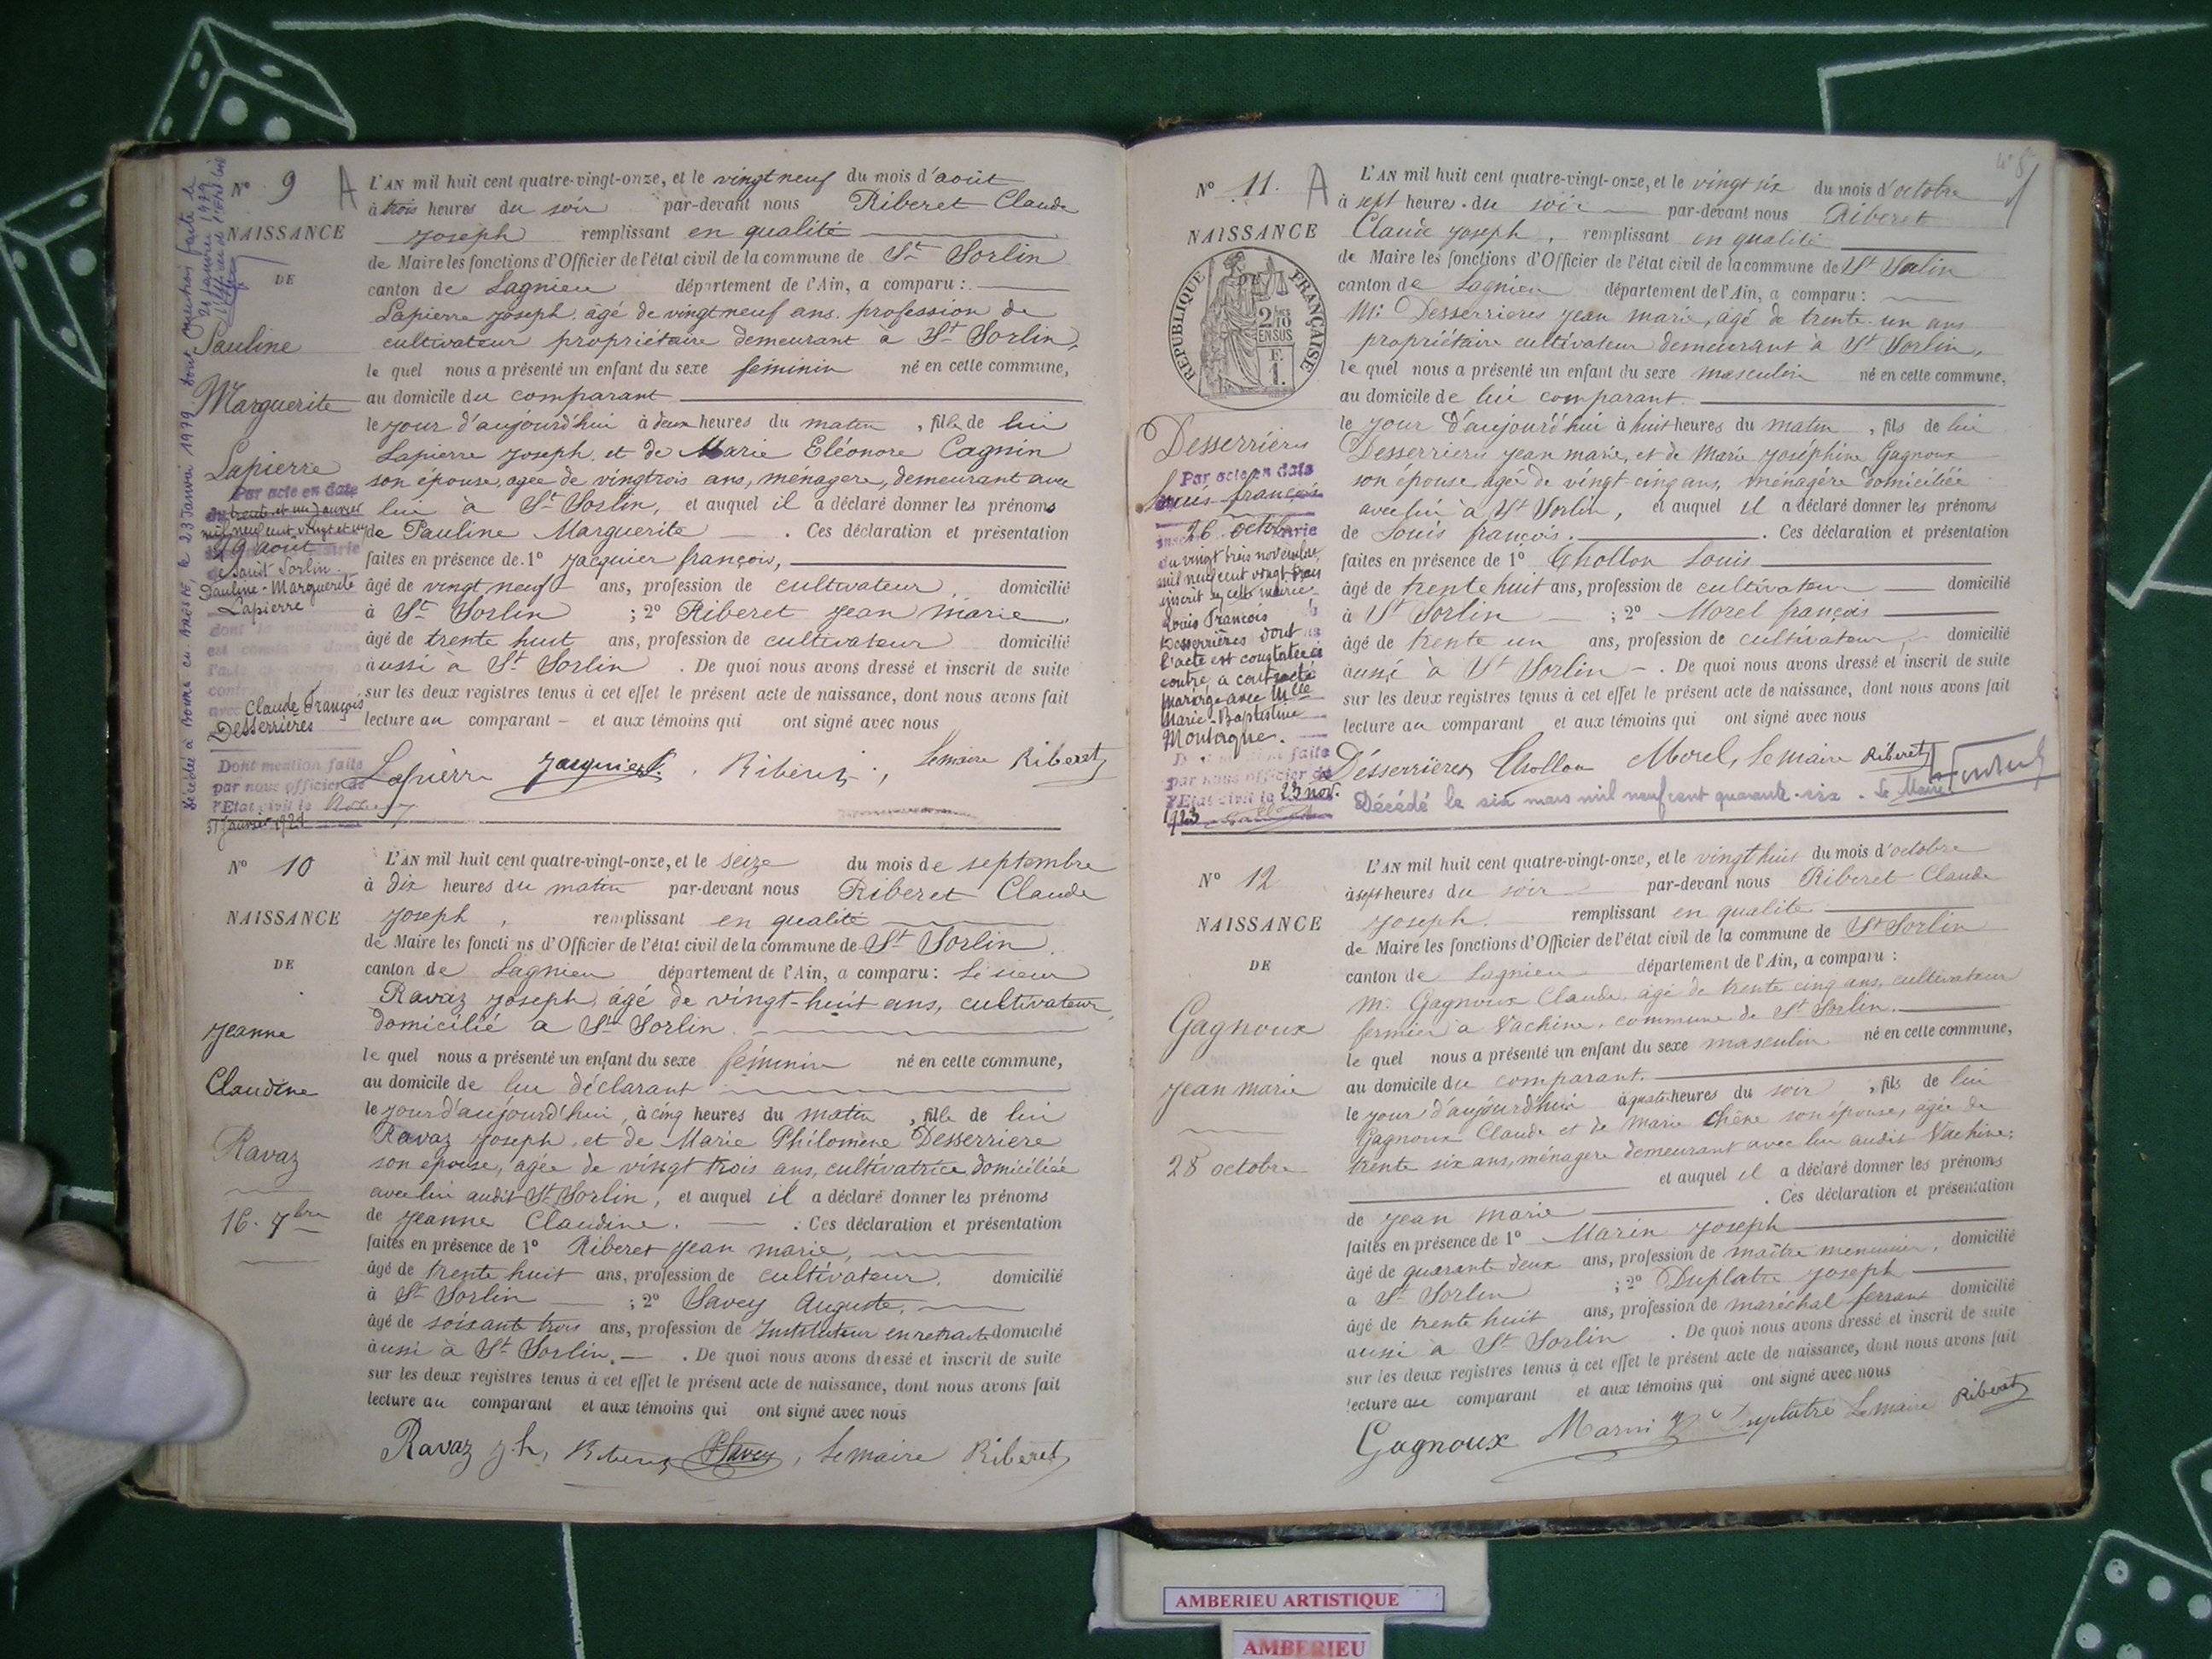 N° 9 A
NAISSANCE
DE
Pauline
Marguerite
Lapierre
Par acte en date
du trente et un Janvier
mil neuf cent vingt et un
29 août
de Saint Sorlin
Pauline-Marguerite
Lapierre
dont la naissance
est constatée dans
l'acte ci-contre, a
avec Claude François
Desserrières
Dont mention faite
par nous officier de
l'Etat-civil le
31 Janvier 1921
L'AN mil huit cent quatre-vingt-onze, et le vingt neuf du mois d'août
à trois heures du soir par-devant nous Riberet Claude
Joseph remplissant en qualité
de Maire les fonctions d'Officier de l'état civil de la commune de St Sorlin
canton de Lagnieu département de l'Ain, a comparu :
Lapierre Joseph, âgé de vingt neuf ans, profession de
cultivateur propriétaire demeurant à St Sorlin,
le quel nous a présenté un enfant du sexe féminin né en cette commune,
au domicile du comparant
le jour d'aujourd'hui à deux heures du matin, fille de lui
Lapierre Joseph et de Marie Eléonore Cagnin
son épouse, agée de vingtrois ans, ménagère, demeurant avec
lui à St Sorlin, et auquel il a déclaré donner les prénoms
de Pauline Marguerite. Ces déclaration et présentation
faites en présence de 1° Jacquier françois,
âgé de vingt neuf ans, profession de cultivateur, domicilié
à St Sorlin ; 2° Riberet Jean marie,
âgé de trente huit ans, profession de cultivateur domicilié
aussi à St Sorlin. De quoi nous avons dressé et inscrit de suite
sur les deux registres tenus à cet effet le présent acte de naissance, dont nous avons fait
lecture au comparant et aux témoins qui ont signé avec nous
Lapierre Jacquier f. Riberet, Le maire Riberet
N° 10
NAISSANCE
DE
Jeanne
Claudine
Ravaz
16. 7bre
L'AN mil huit cent quatre-vingt-onze, et le seize du mois de septembre
à dix heures du matin par-devant nous Riberet Claude
Joseph, remplissant en qualité
de Maire les foncti ns d'Officier de l'état civil de la commune de St Sorlin
canton de Lagnieu département de l'Ain, a comparu : Le sieur
Ravaz Joseph, âgé de vingt-huit ans, cultivateur,
domicilié à St Sorlin.
le quel nous a présenté un enfant du sexe féminin né en cette commune,
au domicile de lui déclarant
le jour d'aujourd'hui, à cinq heures du matin, fille de lui
Ravaz Joseph, et de Marie Philomène Desserriere
son épouse, agée de vingt trois ans, cultivatrice domiciliée
avec lui audit St Sorlin, et auquel il a déclaré donner les prénoms
de Jeanne Claudine. Ces déclaration et présentation
faites en présence de 1° Riberet Jean marie,
âgé de trente huit ans, profession de cultivateur, domicilié
à St Sorlin ; 2° Savey Auguste,
âgé de soixante trois ans, profession de Instituteur en retraite domicilié
aussi à St Sorlin. De quoi nous avons dressé et inscrit de suite
sur les deux registres tenus à cet effet le présent acte de naissance, dont nous avons fait
lecture au comparant et aux témoins qui ont signé avec nous
Ravaz jh, Riberet Savey, Le maire Riberet
N° 11. A
NAISSANCE
RÉPUBLIQUE FRANÇAISE
2/10
EN SUS
F.
1.
Desserrières
Louis françois
Par acte en date
26 octobre
du vingt trois novembre
mil neuf cent vingt trois
inscrit en cette mairie
Louis François
Desserrières dont
l'acte est constatée ci
contre, a contracté
mariage avec Mlle
Marie-Baptistine
Montagne.
Dont mention faite
par nous officier de
l'Etat-civil le 23 nov.
1923
L'AN mil huit cent quatre-vingt-onze, et le vingt six du mois d'octobre
à sept heures du soir par-devant nous Riberet
Claude Joseph, remplissant en qualité
de Maire les fonctions d'Officier de l'état civil de la commune de St Sorlin
canton de Lagnieu département de l'Ain, a comparu :
Mr Desserrieres Jean marie, âgé de trente-un ans
propriétaire cultivateur demeurant à St Sorlin,
le quel nous a présenté un enfant du sexe masculin né en cette commune,
au domicile de lui comparant.
le jour d'aujourd'hui à huit heures du matin, fils de lui
Desserrieres Jean marie, et de Marie Joséphine Gagnoux
son épouse agée de vingt-cinq ans, ménagère domiciliée
avec lui à St Sorlin, et auquel il a déclaré donner les prénoms
de Louis françois. Ces déclaration et présentation
faites en présence de 1° Chollon Louis
âgé de trente huit ans, profession de cultivateur domicilié
à St Sorlin ; 2° Morel français
âgé de trente un ans, profession de cultivateur, domicilié
aussi à St Sorlin. De quoi nous avons dressé et inscrit de suite
sur les deux registres tenus à cet effet le présent acte de naissance, dont nous avons fait
lecture au comparant et aux témoins qui ont signé avec nous
Désserrières Chollon Morel, Le maire Riberet
Décédé le six mars mil neuf cent quarante-six. Le Maire
N° 12
NAISSANCE
DE
Gagnoux
Jean marie
28 octobre
L'AN mil huit cent quatre-vingt-onze, et le vingt huit du mois d'octobre
à sept heures du soir par-devant nous Riberet Claude
Joseph. remplissant en qualité
de Maire les fonctions d'Officier de l'état civil de la commune de St Sorlin
canton de Lagnieu département de l'Ain, a comparu :
Mr Gagnoux Claude, âgé de trente cinq ans, cultivateur
fermier à Vachine, commune de St Sorlin.
le quel nous a présenté un enfant du sexe masculin né en cette commune,
au domicile du comparant.
le jour d'aujourd'hui à quatre heures du soir, fils de lui
Gagnoux Claude et de Marie Chêne son épouse, agée de
trente six ans, ménagère demeurant avec lui audit Vachine;
et auquel il a déclaré donner les prénoms
de Jean marie. Ces déclaration et présentation
faites en présence de 1° Marin Joseph
âgé de quarante deux ans, profession de maître menuisier, domicilié
à St Sorlin ; 2° Duplatre Joseph
âgé de trente huit ans, profession de maréchal ferrant domicilié
aussi à St Sorlin. De quoi nous avons dressé et inscrit de suite
sur les deux registres tenus à cet effet le présent acte de naissance, dont nous avons fait
lecture au comparant et aux témoins qui ont signé avec nous
Gagnoux Marin Duplatre Le maire Riberet
AMBERIEU ARTISTIQUE
AMBERIEU